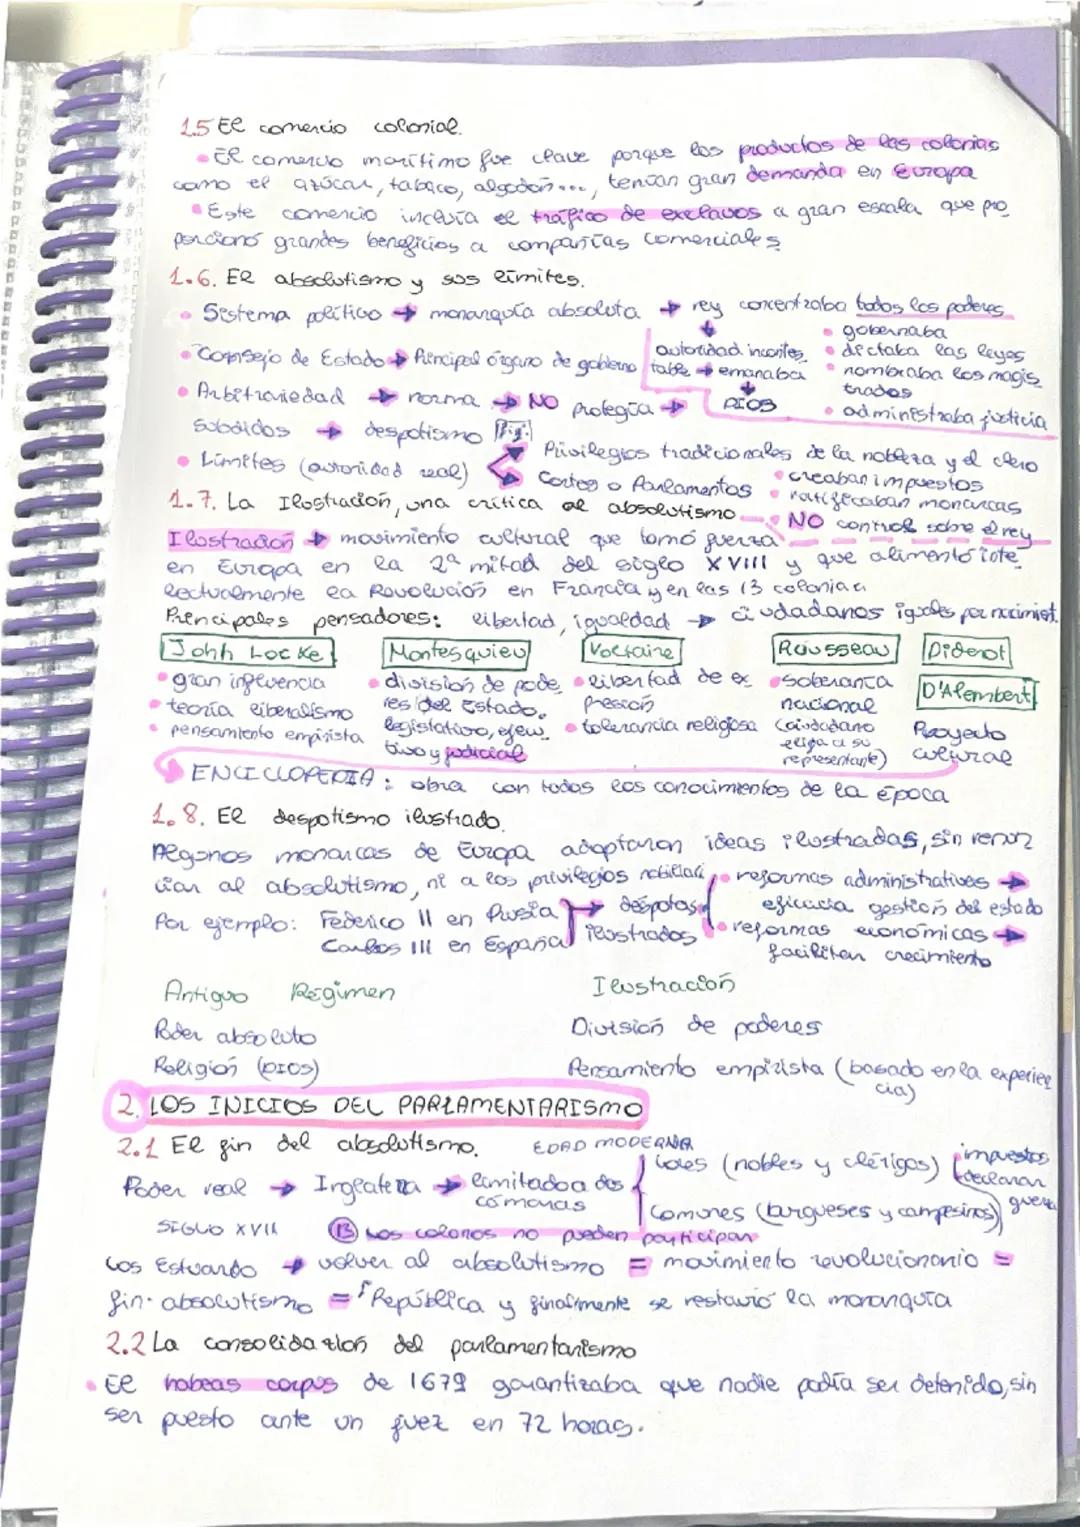 1.5 El comercio colonial.
• El comercio marítimo fue clave porque los productos de las colonias
como el azúcar, tabaco, algodón..., tenían gran demanda en Europa
• Este comercio incluía el tráfico de exclavos a gran escala que pro
porcionó grandes beneficios a compañías comerciales
1.6. El absolutismo y sus límites.
• Sistema político → monarquía absoluta → rey concentraba todos los poderes
• gobernaba
• dictaba las leyes
• nombraba los magis
trados
• administraba justicia
autoridad incontes
table → emanaba
DIOS
• Consejo de Estado → Principal órgano de gobierno
• Arbitrariedad → norma → NO protegía →
subdidos → despotismo
• Límites (autoridad real)
Privilegios tradicionales de la nobleza y el clero
Cortes o Parlamentos
• creaban impuestos
• ratificaban monarcas
• NO control sobre el rey
1.7. La Ilustración, una crítica al absolutismo
Ilustración → movimiento cultural que tomó fuerza
en Europa en la 2ª mitad del siglo XVIII y que alimentó inte
lectualmente la Revolución en Francia y en las 13 colonias
Principales pensadores: libertad, igualdad → ciudadanos iguales por nacimient.
John Locke
• gran influencia
• teoría liberalismo
• pensamiento empirista
Montesquieu
• división de pode
res del Estado.
legislativo, ejecu
tivo y judicial
Voltaire
• libertad de ex
presión
• tolerancia religiosa
Rousseau
• soberanía
nacional
(ciudadano
elija a su
representante)
Diderot
D'Alembert
Proyecto
cultural
ENCICLOPEDIA: obra con todos los conocimientos de la época
1.8. El despotismo ilustrado.
Algunos monarcas de Europa adoptaron ideas ilustradas, sin renun
ciar al absolutismo, ni a los privilegios nobiliari
Por ejemplo: Federico II en Prusia
Carlos III en España
→ déspotas
ilustrados
• reformas administrativas →
eficacia gestión del estado
• reformas económicas →
faciliten crecimiento
Antiguo Régimen Ilustración
Poder absoluto División de poderes
Religión (DIOS) Pensamiento empirista (basado en la experien
cia)
2. LOS INICIOS DEL PARLAMENTARISMO
2.1 El fin del absolutismo. EDAD MODERNA
Poder real → Inglaterra → limitado a dos
cámaras
lores (nobles y clérigos)
impuestos
declaran
guerra
Comunes (burgueses y campesinos)
SIGLO XVII
13 Los colonos no pueden participar
Los Estuardo → volver al absolutismo = movimiento revolucionario =
fin absolutismo = República y finalmente se restauró la monarquía
2.2 La consolidación del parlamentarismo
• El habeas corpus de 1679 garantizaba que nadie podía ser detenido, sin
ser puesto ante un juez en 72 horas.